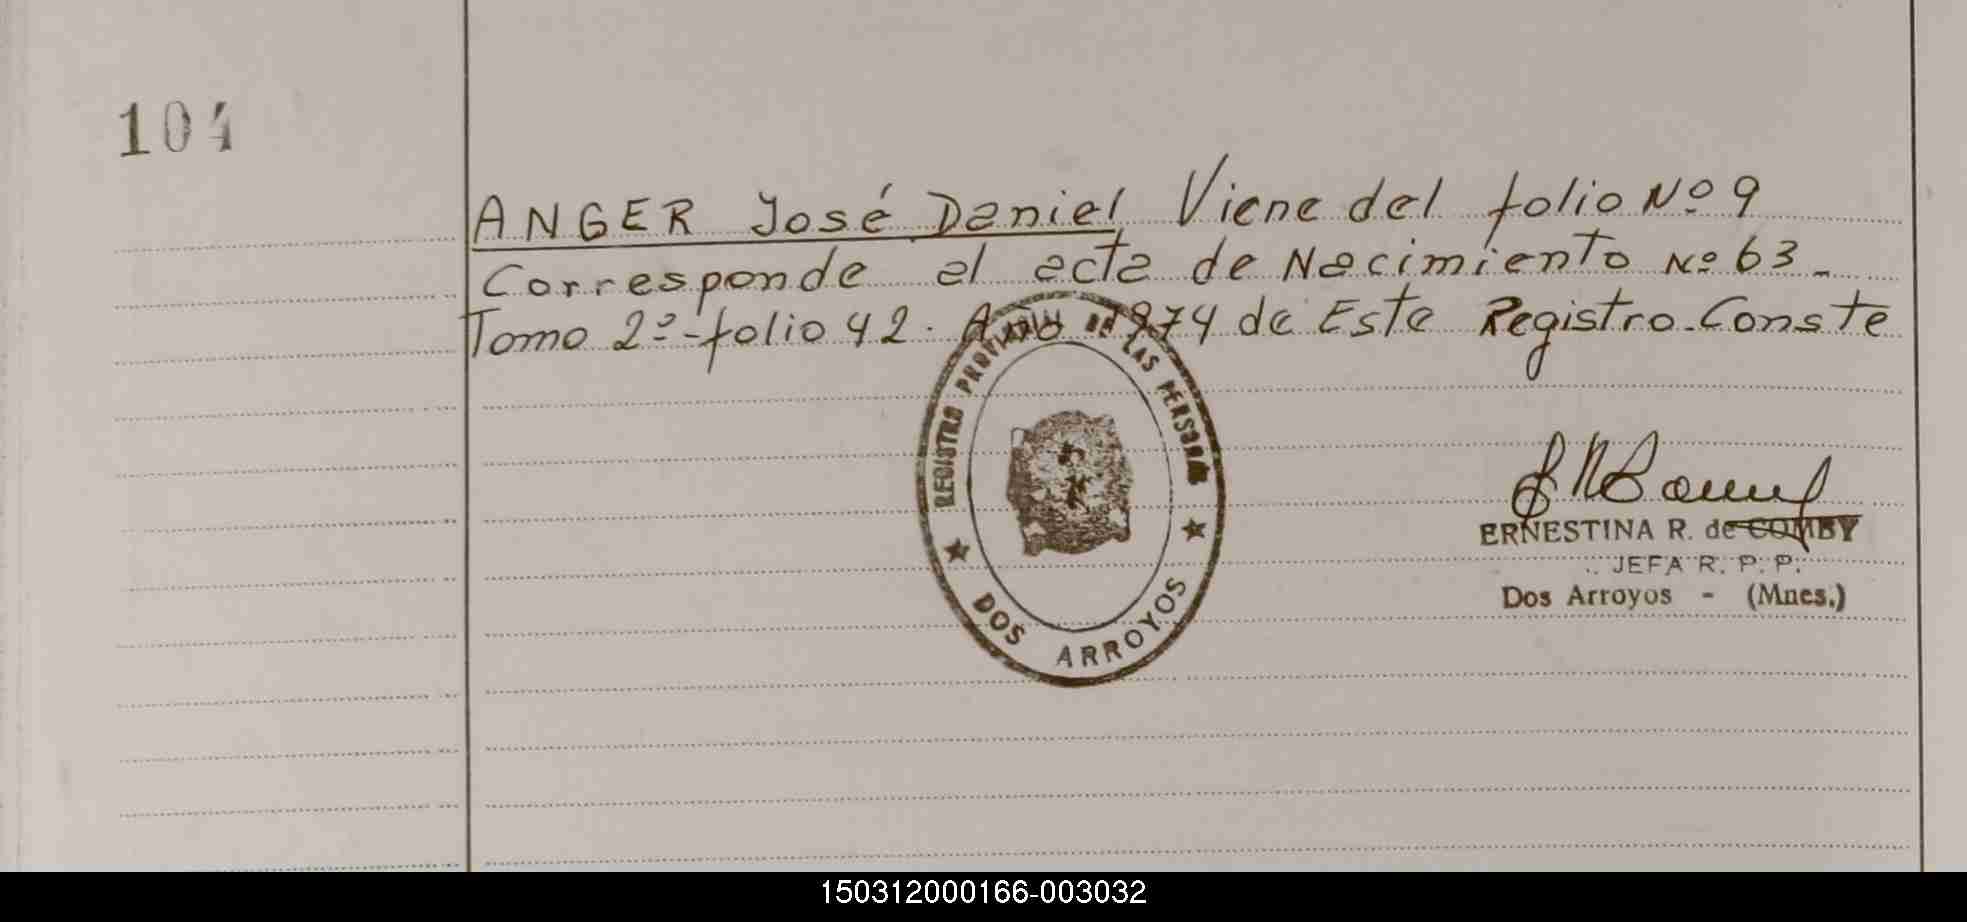 104
ANGER José Daniel Viene del folio Nº 9
Corresponde al acta de Nacimiento Nº 63 -
Tomo 2º - folio 42. Año 1974 de Este Registro. Conste
REGISTRO PROVINCIAL DE LAS PERSONAS
DOS ARROYOS
ERNESTINA R. de COMBY
JEFA R. P. P.
Dos Arroyos - (Mnes.)
150312000166-003032